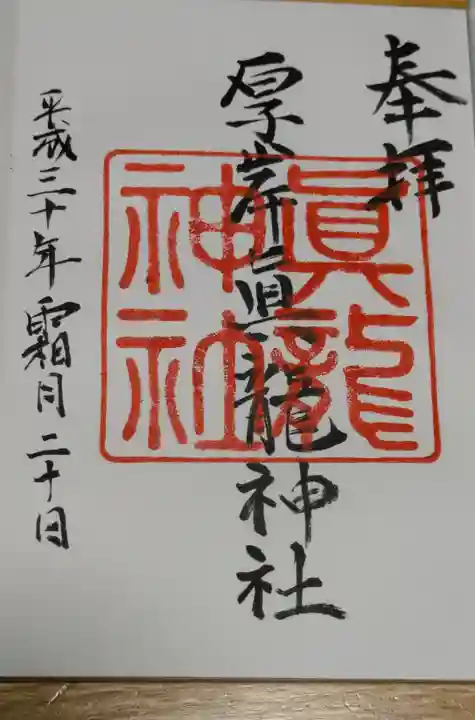 奉拝
厚岸眞龍神社
眞龍神社
平成三十年霜月二十日